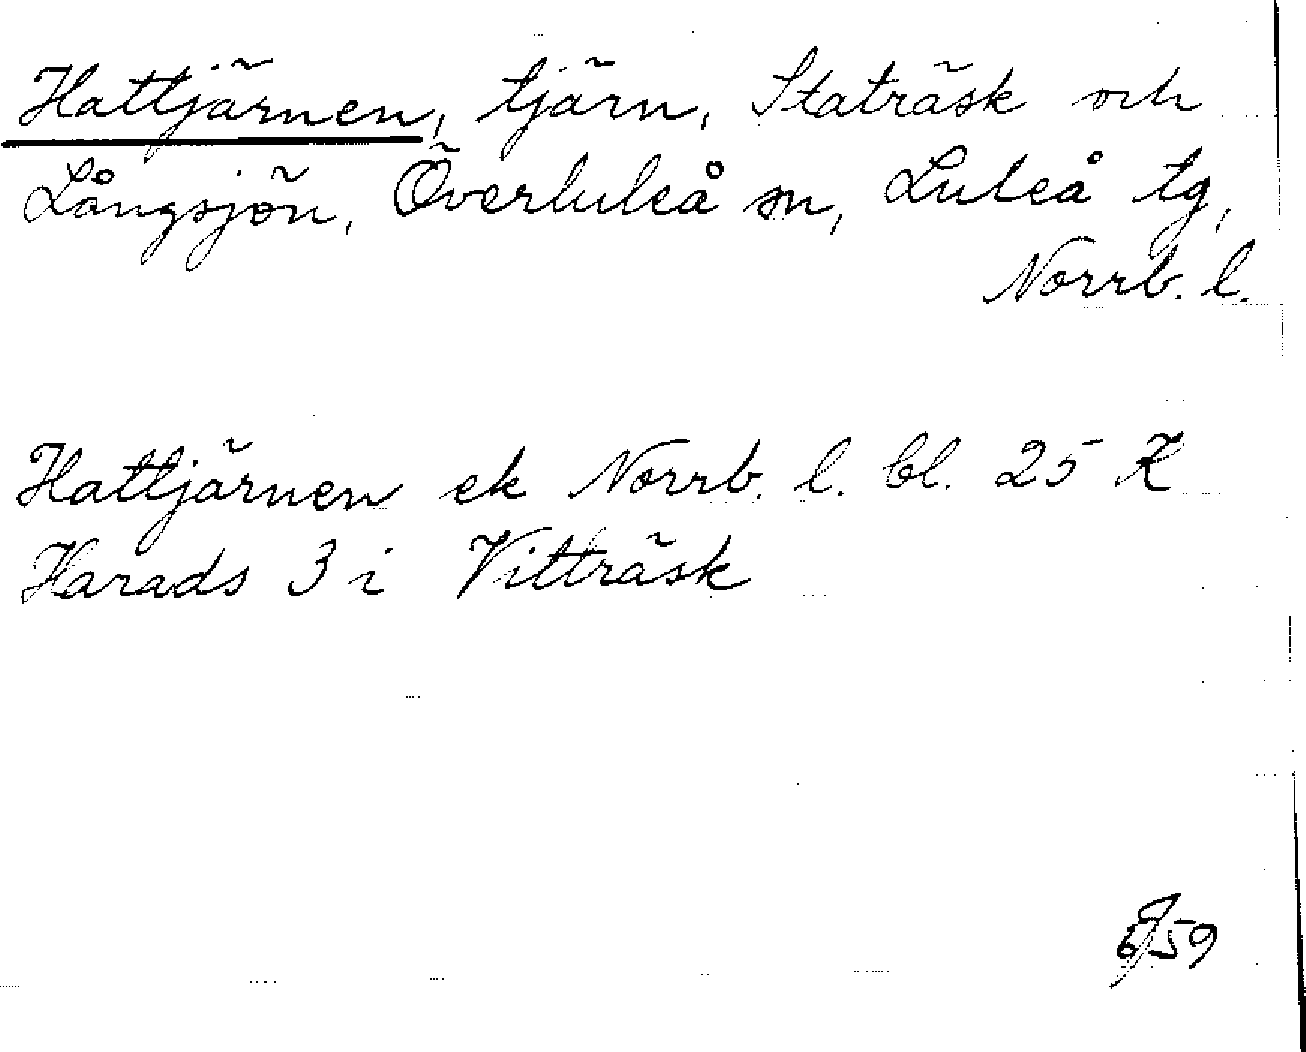 Hattjärnen, tjärn, Staträsk och
Långsjön, Överluleå sn, Luleå tg,
Norrb. l.
Hattjärnen ek Norrb. l. bl. 25 K
Harads 3 i Vitträsk
59